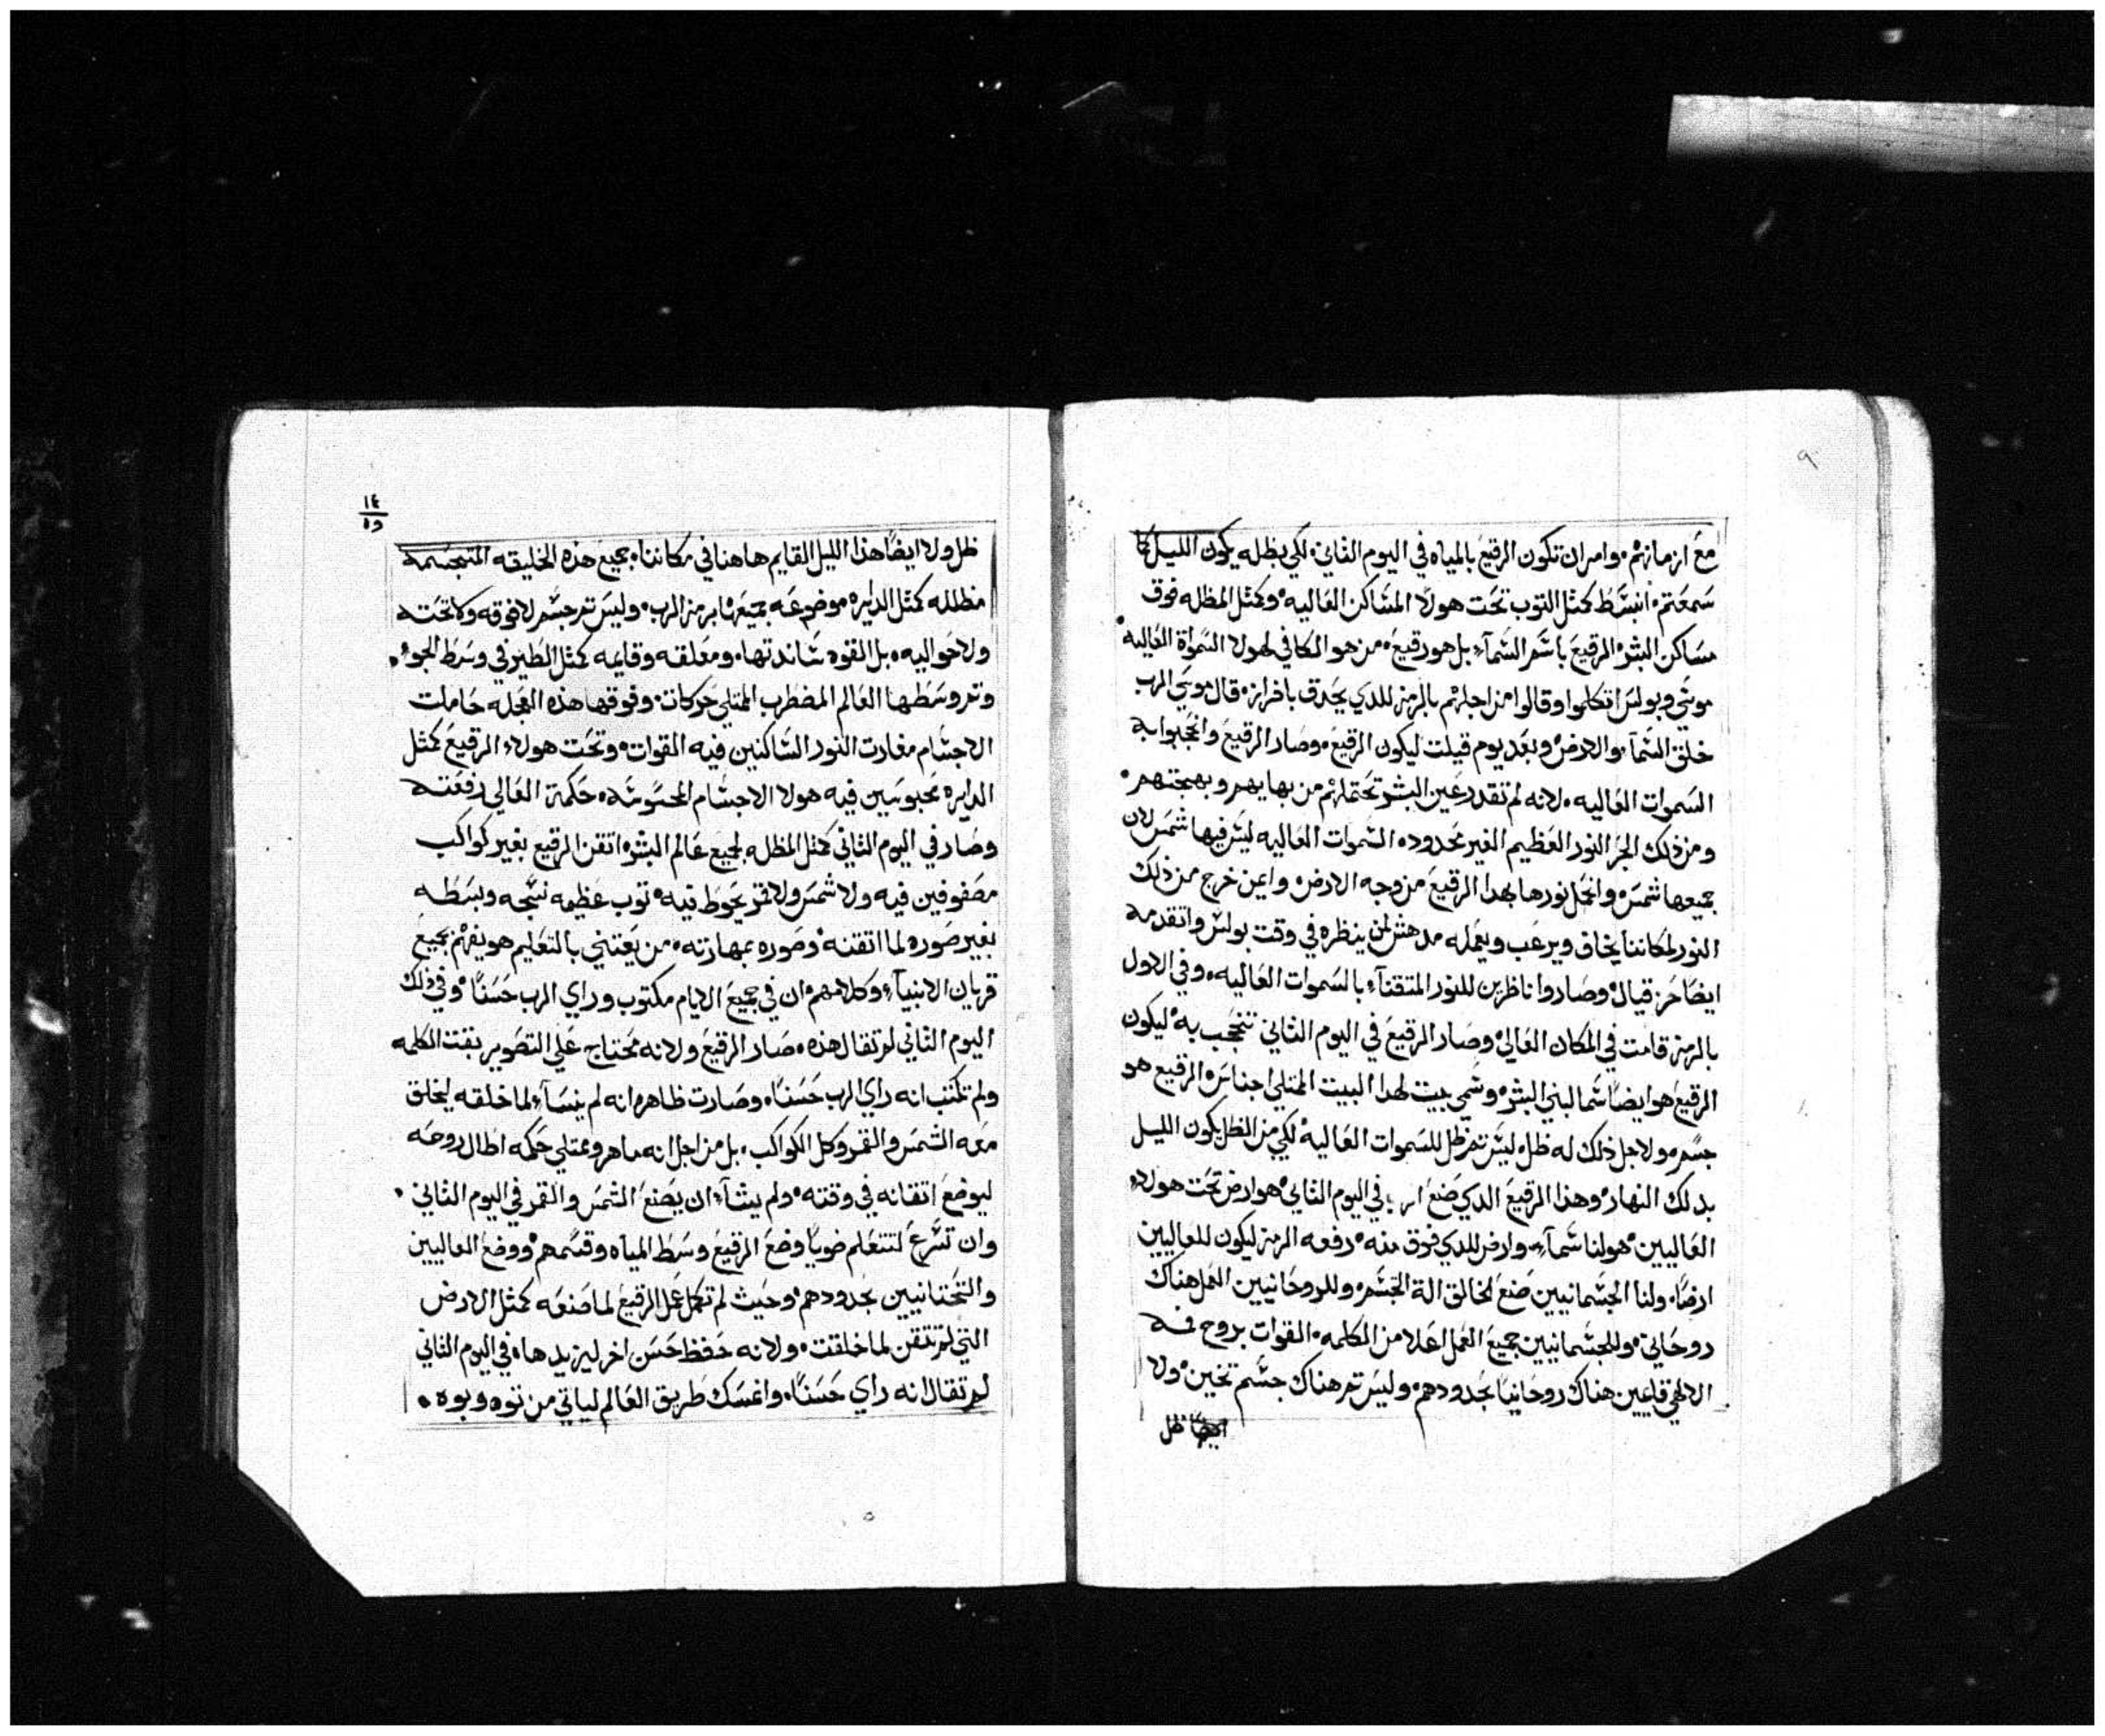 ٩
مع ازمانهم. وامر ان تكون الرقيع بالمياه في اليوم الثاني. لكي بظله يكون الليل كما
سمعتم. انبسط كمثل التوب تحت هولا المساكن العاليه. وكمثل المظله فوق
مساكن البشر الرقيع باسم السمآء بل هو رقيع. من هو الكافي لهولا السمواة العاليه.
موسي وبولس اتكلموا وقالوا من اجلهم بالرمز للدي يحدق بافراز. قال موسي الرب
خلق السمآء والارض وبعد يوم قيلت ليكون الرقيع. وصار الرقيع وانحجبوا به
السموات العاليه. لانه لم تقدر عين البشر تحتملهم من بهايهم وبهجتهم.
ومن ذلك البحر النور العظيم الغير محدوده السموات العاليه ليس فيها شمس لان
جميعها شمس وانحل نورها بهدا الرقيع من وجه الارض. واعن خرج من ذلك
النور لمكاننا يخاف ويرعب ويعمله مدهش لمن ينظره في وقت بولس واتقدمه
ايضا حزقيال وصاروا ناظرين للنور المتقنآء بالسموات العاليه. وفي الاول
بالرمز قامت في المكان العالي وصار الرقيع في اليوم الثاني تنحجب به ليكون
الرقيع هو ايضا سما لبني البشر وسمي بيت لهدا البيت الممتلي اجناس. الرقيع هو
جسم. ولاجل ذلك له ظل. ليس تم ظل للسموات العاليه لكي من الظل يكون الليل
بدلك النهار. وهذا الرقيع الدي صنع الرب في اليوم الثاني. هو ارض تحت هولاء
العاليين. هو لنا سمآء وارض للدي فوق منه. رفعه الرمز ليكون للعاليين
ارضا. ولنا الجسمانيين صنع الخالق الة الجسم. وللروحانيين العمل هناك
روحاني. وللجسمانيين جميع العمل اعلا من الكلمه. القوات بروح فمه
الالهي قايمين هناك روحانيا بحدودهم. وليس تم هناك جسم تخين. ولا
ايضا ظل
١٤
٥٩
ظل ولا ايضا هذا الليل القايم هاهنا في مكاننا. جميع هذه الخليقه المتجسمه
مظلله كمثل الدايره موضوعه جميعها برمز الرب. وليس تم جسم لا فوقه ولا تحته
ولا حواليه. بل القوه ساندتها. ومعلقه وقايمه كمثل الطير في وسط الجو.
وتم وسطها العالم المضطرب الممتلي حركات. وفوقها هذه العجله حاملت
الاجسام مغارت النور الساكنين فيه القوات. وتحت هولاء الرقيع كمثل
الدايره محبوسين فيه هولا الاجسام المحسوسه. حكمة العالي رفعته
وصار في اليوم الثاني كمثل المظله لجميع عالم البشر. اتقن الرقيع بغير كواكب
مصفوفين فيه ولا شمس ولا قمر يحوط فيه. توب عظيمه نسجه وبسطه
بغير صوره لما اتقنه. وصوره بمهارته. من يعتني بالتعليم هو يفهم بجميع
قريان الانبيآء وكلامهم. ان في جميع الايام مكتوب وراي الرب حسنا. وفي ذلك
اليوم الثاني لم تقال هذه. صار الرقيع ولانه محتاج علي التصوير بقت الكلمه
ولم تكتب انه راي الرب حسنا. وصارت ظاهره انه لم ينسآء لما خلقه ليخلق
معه الشمس والقمر وكل الكواكب. بل من اجل انه ماهر وممتلي حكمه اطال روحه
ليوضع اتقانه في وقته. ولم يشآء ان يصنع الشمس والقمر في اليوم الثاني.
وان تسرع لتتعلم ضويا وضع الرقيع وسط المياه وقسمهم. ووضع العاليين
والتحتانيين بحدودهم. وحيث لم تكمل عمل الرقيع لما صنعه كمثل الارض
التي لم تتقن لما خلقت. ولانه حفظ حسن اخر ليزيدها. في اليوم الثاني
لم تقال انه راي حسنا. وانمسك طريق العالم لياتي من توه وبوه.